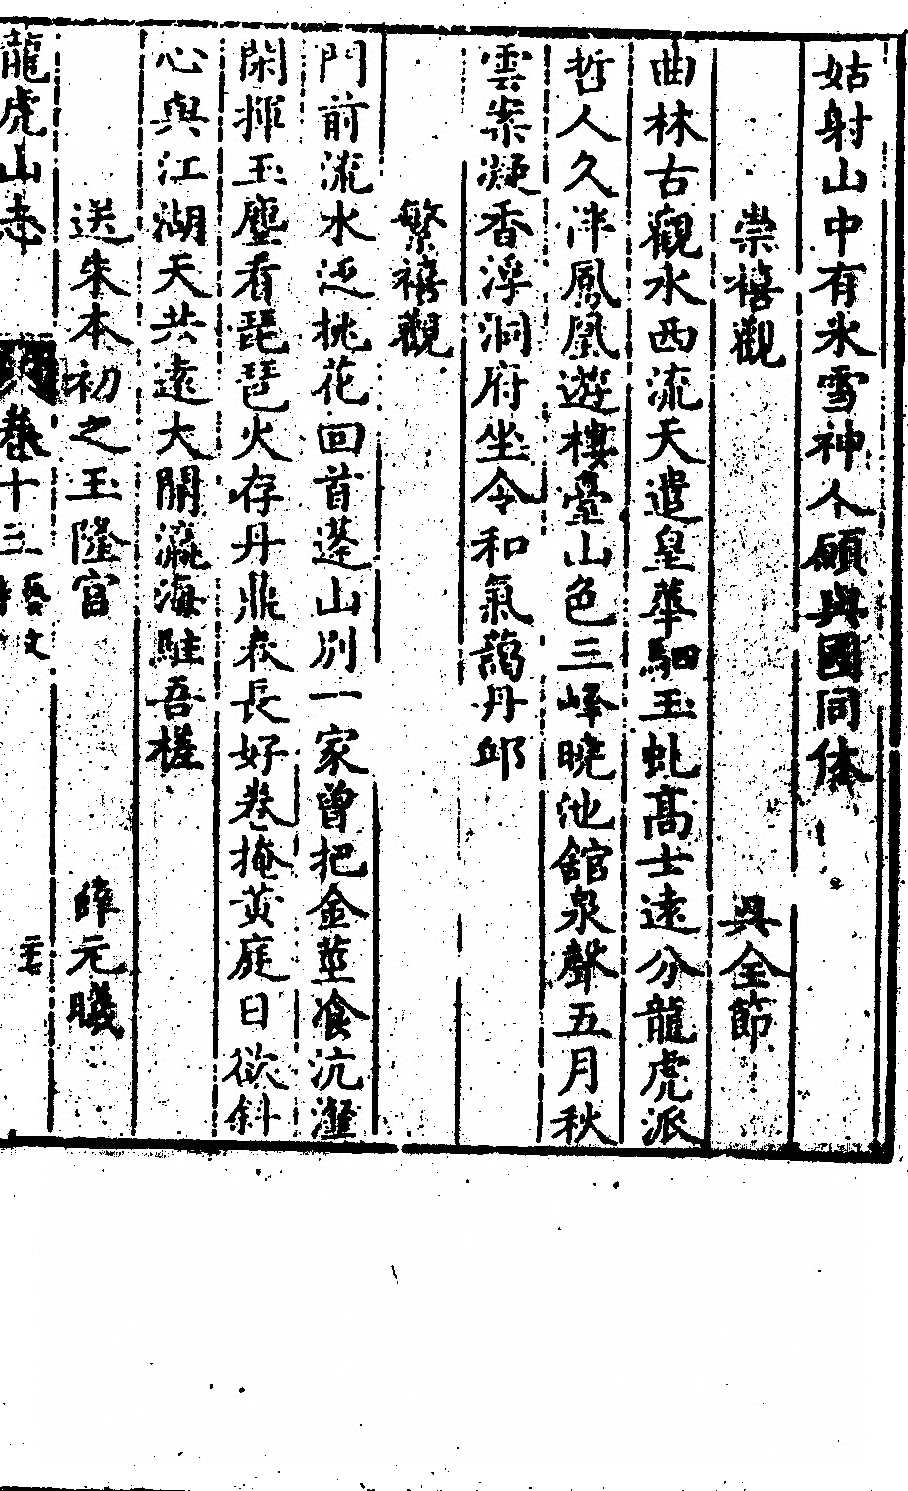 姑射山中有氷雪神人願與國同体
崇禧觀 吳全節
曲林古觀水西流天遣皇華駟玉虬髙士遠分龍虎派
哲人久泮鳳凰遊樓臺山色三峰曉池舘泉聲五月秋
雲案凝香浮洞府坐令和氣藹丹邱
繁禧觀
門前流水泛桃花回首蓬山別一家曾把金莖飡沆瀣
閑揮玉麈看琵琶火存丹鼎春長好卷掩黃庭日欲斜
心與江湖天共遠大開瀛海駐吾槎
送朱本初之玉隆官 薛元曦
龍虎山志 卷十三 藝文 三